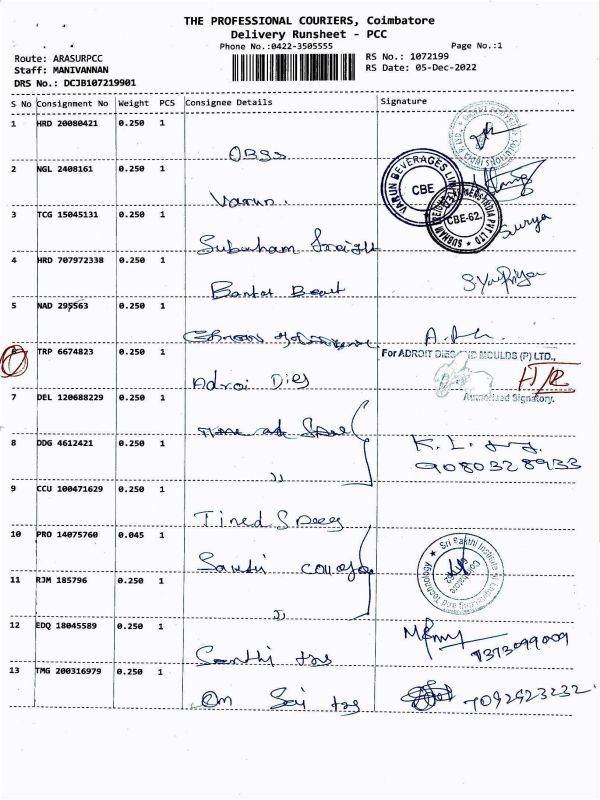 THE PROFESSIONAL COURIERS, Coimbatore
Delivery Runsheet - PCC
Phone No.:0422-3505555
Page No.:1
Route: ARASURPCC
Staff: MANIVANNAN
DRS No.: DCJB107219901
RS No.: 1072199
RS Date: 05-Dec-2022
S No Consignment No Weight PCS Consignee Details Signature
1 HRD 20080421 0.250 1
OBSS
2 NGL 2408161 0.250 1
Varun..
VARUN BEVERAGES LIM
CBE
3 TCG 15045131 0.250 1
Subham Freight
CBE-62.
Surya
4 HRD 707972338 0.250 1
5 NAD 295563 0.250 1
6 TRP 6674823 0.250 1
Adroi Dies
For ADROIT DIES AND MOULDS (P) LTD.,
Authorised Signatory.
7 DEL 120688229 0.250 1
8 DDG 4612421 0.250 1
JJ
K. L.
9080328933
9 CCU 100471629 0.250 1
10 PRO 14075760 0.045 1
Sri Sakthi Institute of Engineering and Technology
Coimbatore
11 RJM 185796 0.250 1
JJ
12 EDQ 18045589 0.250 1
Santhi tss
7373099009
13 TMG 200316979 0.250 1
Om Sai tss
7092923232.